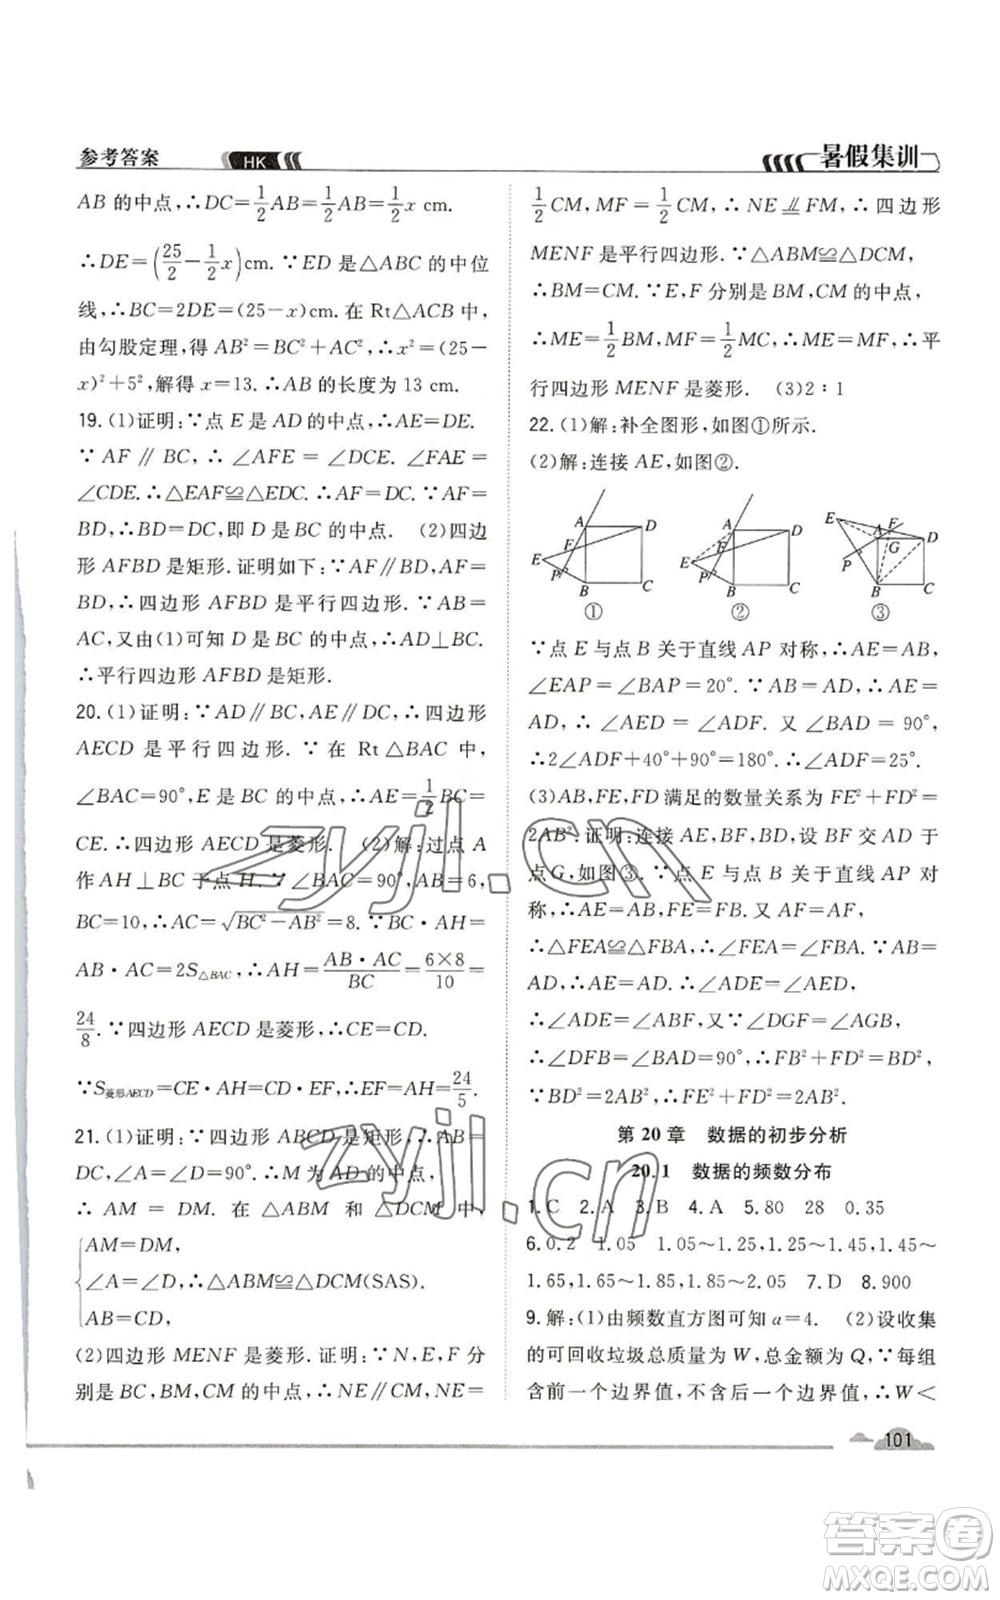 参考答案
HK
暑假集训
AB 的中点,∴DC=1/2AB=1/2AB=1/2x cm.
∴DE=(25/2-1/2x)cm.∵ED 是△ABC 的中位
线,∴BC=2DE=(25-x)cm.在 Rt△ACB 中,
由勾股定理,得 AB²=BC²+AC²,∴x²=(25-
x)²+5²,解得 x=13.∴AB 的长度为 13 cm.
19.(1)证明:∵点 E 是 AD 的中点,∴AE=DE.
∵AF∥BC,∴∠AFE=∠DCE,∠FAE=
∠CDE.∴△EAF≌△EDC.∴AF=DC.∵AF=
BD,∴BD=DC,即 D 是 BC 的中点. (2)四边
形 AFBD 是矩形.证明如下:∵AF∥BD,AF=
BD,∴四边形 AFBD 是平行四边形.∵AB=
AC,又由(1)可知 D 是 BC 的中点,∴AD⊥BC.
∴平行四边形 AFBD 是矩形.
20.(1)证明:∵AD∥BC,AE∥DC,∴四边形
AECD 是平行四边形.∵在 Rt△BAC 中,
∠BAC=90°,E 是 BC 的中点,∴AE=1/2BC=
CE.∴四边形 AECD 是菱形. (2)解:过点 A
作 AH⊥BC 于点 H.∵∠BAC=90°,AB=6,
BC=10,∴AC=√(BC²-AB²)=8.∵BC·AH=
AB·AC=2S△BAC,∴AH=AB·AC/BC=6×8/10=
24/8.∵四边形 AECD 是菱形,∴CE=CD.
∵S菱形AECD=CE·AH=CD·EF,∴EF=AH=24/5.
21.(1)证明:∵四边形 ABCD 是矩形,∴AB=
DC,∠A=∠D=90°.∵M 为 AD 的中点,
∴AM=DM.在△ABM 和△DCM 中,
AM=DM,
∠A=∠D,∴△ABM≌△DCM(SAS).
AB=CD,
(2)四边形 MENF 是菱形.证明:∵N,E,F 分
别是 BC,BM,CM 的中点,∴NE∥CM,NE=
1/2CM,MF=1/2CM,∴NE⫽FM,∴四边形
MENF 是平行四边形.∵△ABM≌△DCM,
∴BM=CM.∵E,F 分别是 BM,CM 的中点,
∴ME=1/2BM,MF=1/2CM,∴ME=MF,∴平
行四边形 MENF 是菱形. (3)2∶1
22.(1)解:补全图形,如图①所示.
(2)解:连接 AE,如图②.
A D E F P B C ①
A D E F P B C ②
E F A D G P B C ③
∵点 E 与点 B 关于直线 AP 对称,∴AE=AB,
∠EAP=∠BAP=20°.∵AB=AD,∴AE=
AD,∴∠AED=∠ADF.又∠BAD=90°,
∴2∠ADF+40°+90°=180°.∴∠ADF=25°.
(3)AB,FE,FD 满足的数量关系为 FE²+FD²=
2AB².证明:连接 AE,BF,BD,设 BF 交 AD 于
点 G,如图③.∵点 E 与点 B 关于直线 AP 对
称,∴AE=AB,FE=FB.又 AF=AF,
∴△FEA≌△FBA.∴∠FEA=∠FBA.∵AE=
AB=AD,∴∠ADE=∠AED,
∴∠ADE=∠ABF,又∵∠DGF=∠AGB,
∴∠DFB=∠BAD=90°.∴FB²+FD²=BD².
∵BD²=2AB²,∴FE²+FD²=2AB².
第 20 章 数据的初步分析
20.1 数据的频数分布
1.C 2.A 3.B 4.A 5.80 28 0.35
6.0.2 1.05 1.05~1.25,1.25~1.45,1.45~
1.65,1.65~1.85,1.85~2.05 7.D 8.900
9.解:(1)由频数直方图可知 a=4. (2)设收集
的可回收垃圾总质量为 W,总金额为 Q,∵每组
含前一个边界值,不含后一个边界值,∴W<
101
zyjl.cn
zyjl.cn
答案圈
MXQE.COM